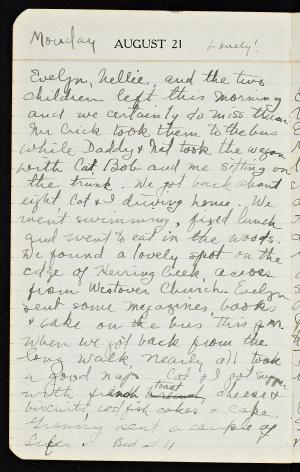 Monday AUGUST 21 Lovely!
Evelyn, Nellie, and the two
children left this morning
and we certainly do miss them
Mr Crick took them to the bus
while Daddy & Nat took the wagon
with Cat, Bob and me sitting on
the trunk. We got back about
eight, Cat & I driving home. We
went swimming, fixed lunch
and went to eat in the woods.
We found a lovely spot on the
edge of Herring Creek, across
from Westover Church. Evelyn
sent some magazines, books
& cake on the bus this p.m.
When we got back from the
long walk nearly all took
a good nap. Cat & I got supper
with french toast, cheese &
biscuits, codfish cakes & cake.
Granny sent a couple of
Bed at 11